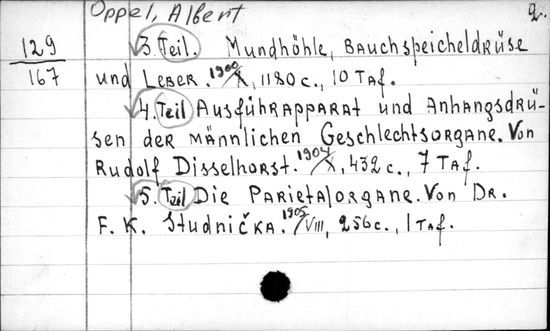 Oppel, Albert 2.
129
167
3. Teil. Mundhöhle, Bauchspeicheldrüse
und Leber. 1900/X, 1180 c., 10 Taf.
4. Teil Ausführapparat und Anhangsdrü-
sen der männlichen Geschlechtsorgane. Von
Rudolf Disselhorst. 1904/X, 432 c., 7 Taf.
5. Teil Die Parietalorgane. Von Dr.
F. K. Studnička. 1905/VIII, 256 c., 1 Taf.